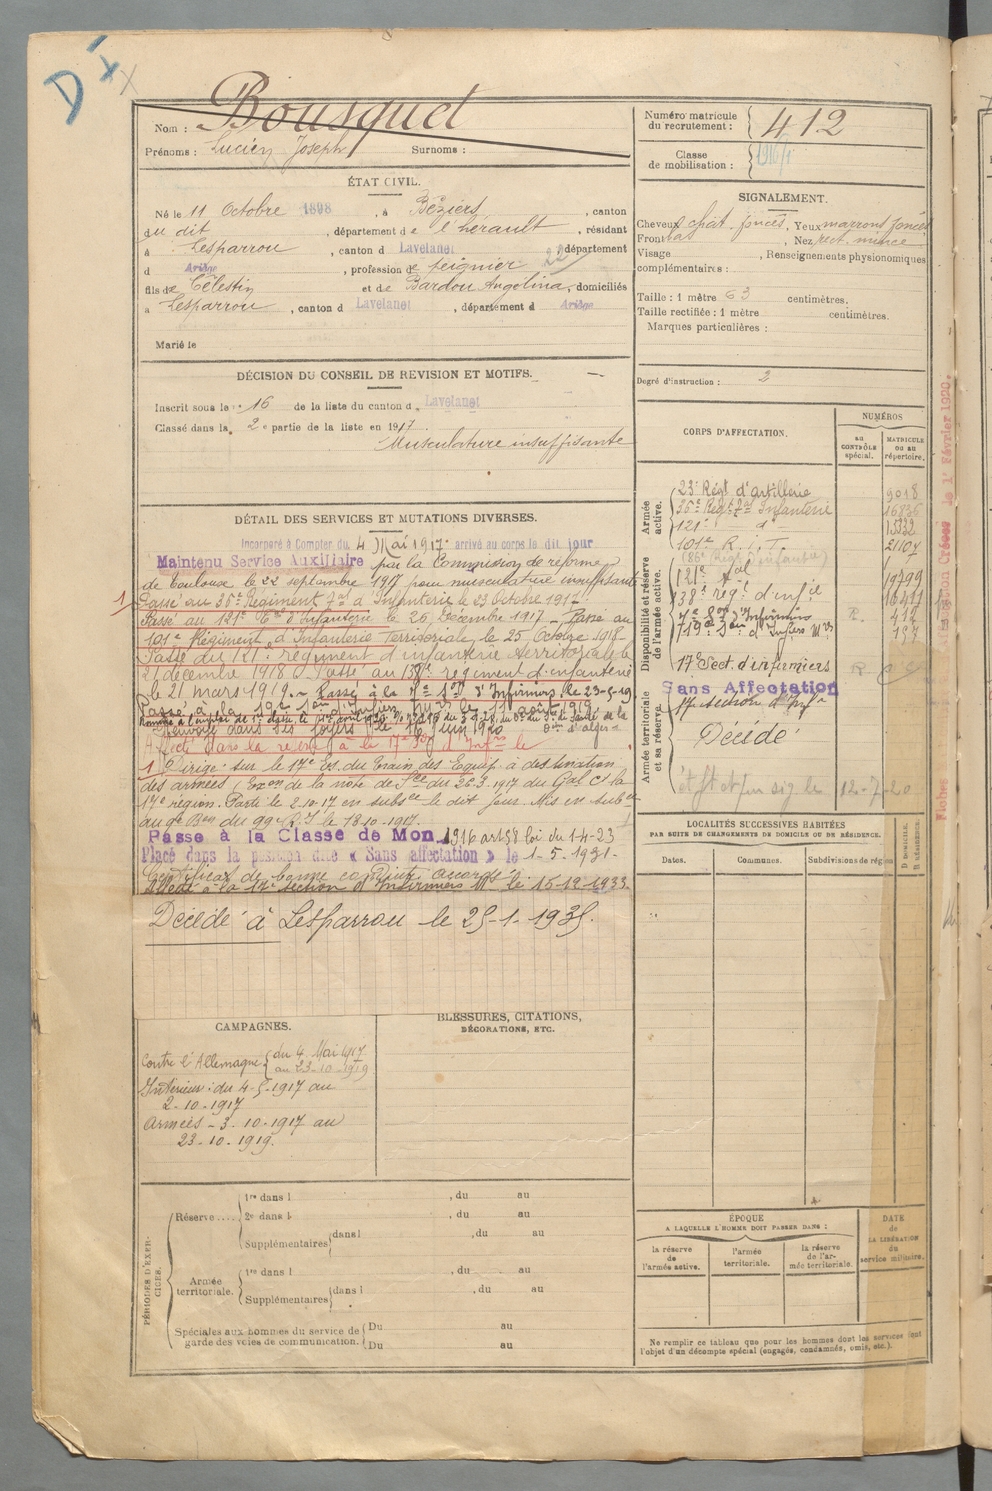 D
Bousquet
Nom :
Prénoms : Lucien Joseph Surnoms :
Numéro matricule
du recrutement : 412
Classe
de mobilisation : 1916/1
ÉTAT CIVIL.
Né le 11 Octobre 1898, à Béziers, canton
du dit, département de l'hérault, résidant
à Lesparrou, canton d Lavelanet département
d Ariège, profession de peignier 22
fils de Célestin et de Bardou Angolina, domiciliés
à Lesparrou, canton d Lavelanet, départemt d Ariège
Marié le
SIGNALEMENT.
Cheveux chat. foncés, Yeux marrons foncés
Front bas, Nez rect. mince
Visage , Renseignements physionomiques
complémentaires :
Taille : 1 mètre 63 centimètres.
Taille rectifiée : 1 mètre centimètres.
Marques particulières :
Degré d'instruction : 2
DÉCISION DU CONSEIL DE REVISION ET MOTIFS.
Inscrit sous le n° 16 de la liste du canton d Lavelanet
Classé dans la 2e partie de la liste en 1917
Musculature insuffisante
DÉTAIL DES SERVICES ET MUTATIONS DIVERSES.
Incorporé à Compter du 4 Mai 1917 arrivé au corps le dit jour
Maintenu Service Auxiliaire par la Commission de réforme
de Toulouse le 22 septembre 1917 pour musculature insuffisante
1 Passé au 35e Régiment d'Infanterie le 23 Octobre 1917
Passé au 121e d'Infanterie le 26 Décembre 1917 - Passé au
101e Régiment d'Infanterie Territoriale le 25 Octobre 1918
Passé du 121e régiment d'infanterie territoriale le
21 décembre 1918. Passé au 38e régiment d'infanterie
le 21 mars 1919. - Passé à la 7e Son d'Infirmiers le 23-5-19
Passé à la 19e Son d'Infiers Mres le 11 août 1919
Renvoyé dans ses foyers le 16 juin 1920
Affecté dans la réserve à la 17e Son d'Infrs le
1 Dirigé sur le 17e Es. du Train des Equip. à destination
des armées (Exon de la note de Sce du 26.3.1917 du Gal Ct la
17e région. Parti le 2.10.17 en subsce le dit jour. Mis en subce
au 9e Bon du 99e R.I le 18.10.1917.
Passé à la Classe de Mon 1916 art 58 loi du 1-4-23
Placé dans la position dite « Sans affectation » le 1-5-1931-
Certificat de bonne conduite accordé
Affecté à la 17e section d'Infirmiers Mres le 15-12-1933.
Décédé à Lesparrou le 25-1-1935.
CORPS D'AFFECTATION.
NUMÉROS
au CONTRÔLE spécial.
MATRICULE OU au répertoire.
Armée active.
23e Régt d'artillerie 9018
35e Régt d'Infanterie 16836
121e d° 15132
101e R.I.T. 21107
Disponibilité et réserve de l'armée active.
(86e Régt d'infanterie)
121e 19799
38e rég. d'inf ie 16411
7e Son d'Infirmiers R. 412
19e Son d'Infiers Mres 157
17e Sect. d'infirmiers R
Armée territoriale et sa réserve
Sans Affectation
17e section d'Infrs
Décédé
12-7-20
Fiches 1er Février 1920.
LOCALITÉS SUCCESSIVES HABITÉES
PAR SUITE DE CHANGEMENTS DE DOMICILE OU DE RÉSIDENCE.
Dates. Communes. Subdivisions de région
D DOMICILE. R RÉSIDENCE.
CAMPAGNES.
Contre l'Allemagne du 4 Mai 1917
au 23-10-1919
Intérieur : du 4-5-1917 au
2-10-1917
Armées - 3-10-1917 au
23-10-1919.
BLESSURES, CITATIONS,
DÉCORATIONS, ETC.
PÉRIODES D'EXERCICES.
Réserve....
1re dans l , du au
2e dans l , du au
Supplémentaires dans l , du au
Armée territoriale.
1re dans l , du au
Supplémentaires dans l , du au
Spéciales aux hommes du service de
garde des voies de communication.
Du au
Du au
ÉPOQUE
A LAQUELLE L'HOMME DOIT PASSER DANS :
la réserve de l'armée active.
l'armée territoriale.
la réserve de l'armée territoriale.
DATE
de
LA LIBÉRATION
du
service militaire.
Ne remplir ce tableau que pour les hommes dont les services font
l'objet d'un décompte spécial (engagés, condamnés, omis, etc.).